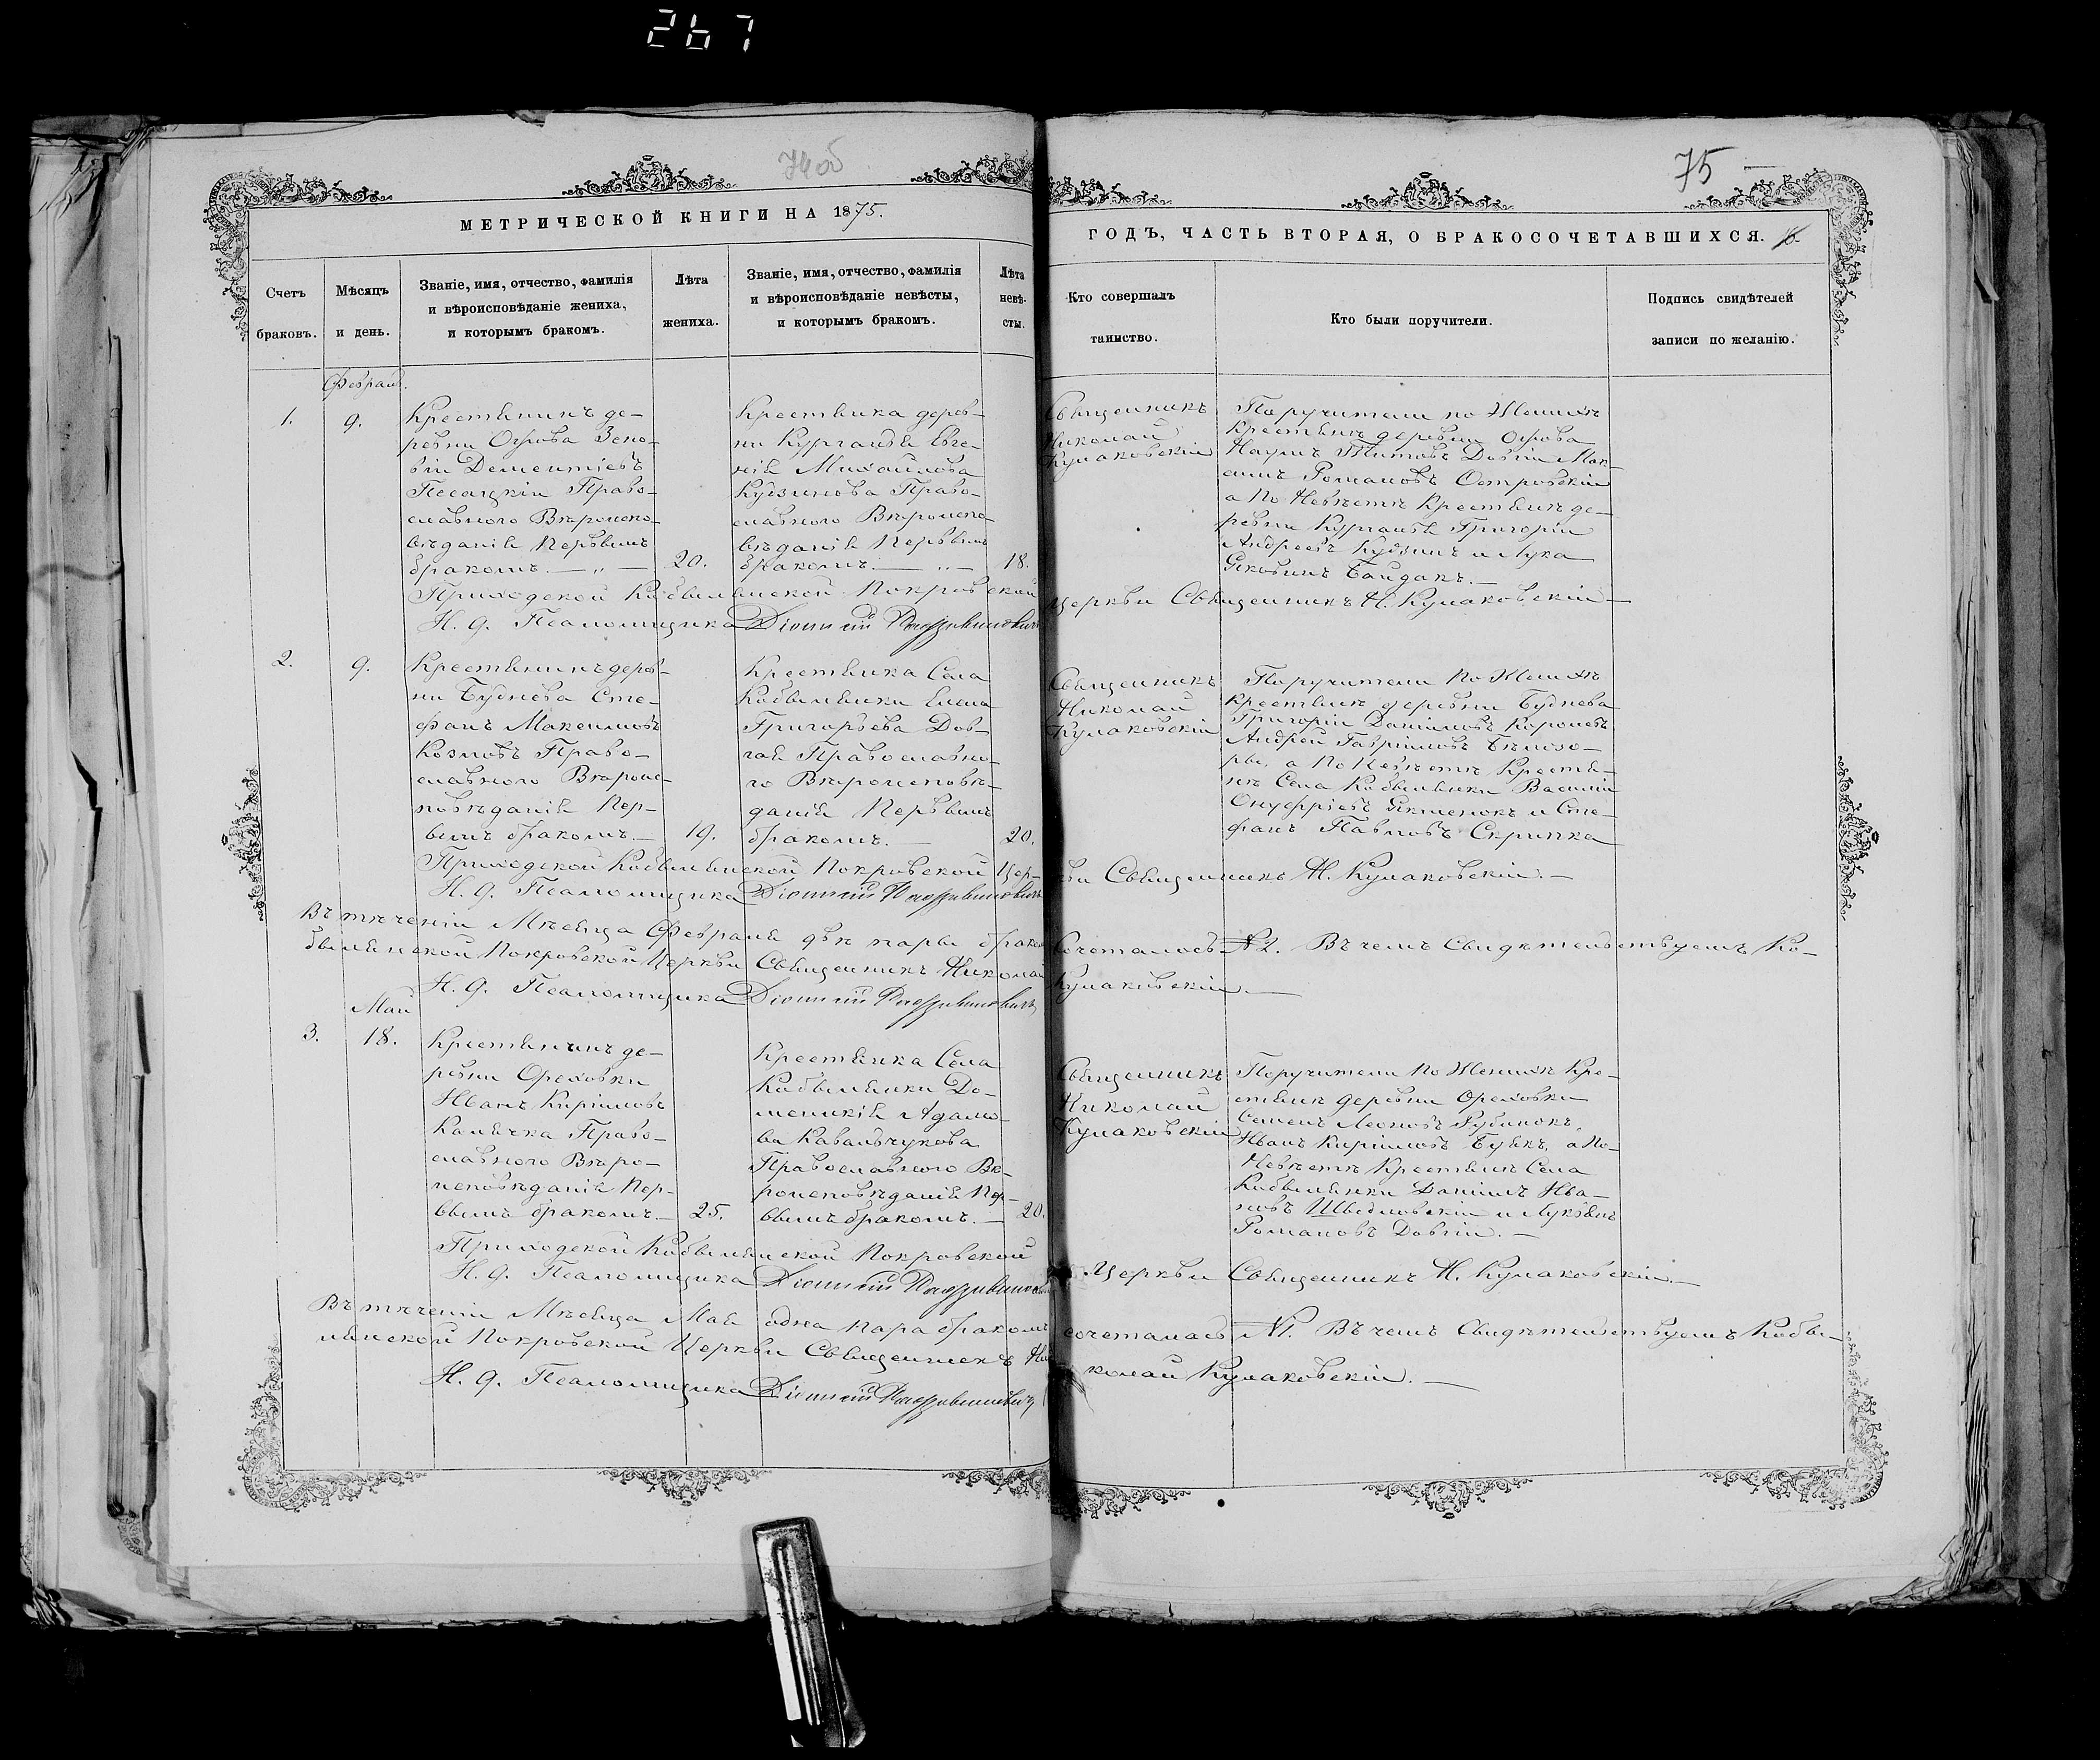 267
74об
75
МЕТРИЧЕСКОЙ КНИГИ НА 1875.
ГОДЪ, ЧАСТЬ ВТОРАЯ, О БРАКОСОЧЕТАВШИХСЯ.
Счетъ браковъ.
Мѣсяцъ и день.
Званіе, имя, отчество, фамилія
и вѣроисповѣданіе жениха,
и которымъ бракомъ.
Лѣта жениха.
Званіе, имя, отчество, фамилія
и вѣроисповѣданіе невѣсты,
и которымъ бракомъ.
Лѣта невѣ-
сты.
Кто совершалъ
таинство.
Кто были поручители.
Подпись свидѣтелей
записи по желанію.
Февраль.
1.
9.
Крестянинъ де-
ревни Зено-
вій Дементіевъ
Песацкій Право-
славного Вѣроиспо-
вѣданія Первымъ
бракомъ.
20.
Крестянка дерев-
ни Курганъ Евге-
нія Михайлова
Кудзинова Право-
славного Вѣроиспо-
вѣданія Первымъ
бракомъ.
18.
Священникъ
Николай
Кулаковскій
Поручители по Женихѣ
Крестяне деревни
Наумъ Титовъ Довгій Мак-
симъ Романовъ Островскій
а По Невѣстѣ Крестяне де-
ревни Курганъ Григорій
Андреевъ Кудзинъ и Лука
Яковинъ Байдакъ.
Приходской Кобылянской Покровской Церкви Священникъ Н. Кулаковскій
И. д. Псаломщика Діонисій
2.
9.
Крестянинъ дерев-
ни Буднева Сте-
фанъ Максимовъ
Козловъ Право-
славного Вѣроис-
повѣданія Пер-
вымъ бракомъ.
19.
Крестянка Села
Кобылянки Елена
Григорьева Дов-
гая Православно-
го Вѣроисповѣ-
данія Первымъ
бракомъ.
20.
Священникъ
Николай
Кулаковскій
Поручители По Женихѣ
Крестяне деревни Буднева
Григорій Даніиловъ
Андрей Гавріиловъ Бѣлозо-
ры, а По Невѣстѣ Крестя-
не Села Кобылянки Василій
Онуфріевъ Якименко и Сте-
фанъ Павловъ Скрипка
Приходской Кобылянской Покровской Церкви Священникъ Н. Кулаковскій.
И. д. Псаломщика Діонисій
Въ теченіи Мѣсяца Февраля двѣ пары бракомъ сочеталось № 2. Въ чемъ Свидѣтельствуемъ Ко-
былянской Покровской Церкви Священникъ Николай Кулаковскій
И. д. Псаломщика Діонисій
Май
3.
18.
Крестянинъ де-
ревни Ореховки
Иванъ Киріиловъ
Калячка Право-
славного Вѣро-
исповѣданія Пер-
вымъ бракомъ.
25.
Крестянка Села
Кобылянки До-
меникія Адамо-
ва Кавальчукова
Православного Вѣ-
роисповѣданія Пер-
вымъ бракомъ.
20.
Священникъ
Николай
Кулаковскій
Поручители По Женихѣ Кре-
стяне деревни Ореховки
Семенъ Леоновъ Рубанокъ,
Иванъ Киріиловъ а По
Невѣстѣ Крестяне Села
Кобылянки Даніилъ Ива-
новъ и Лукянъ
Романовъ Довгій.
Приходской Кобылянской Покровской Церкви Священникъ Н. Кулаковскій.
И. д. Псаломщика Діонисій
Въ теченіи Мѣсяца Мая одна пара бракомъ сочеталась № 1. Въ чемъ Свидѣтельствуемъ Кобы-
лянской Покровской Церкви Священникъ Николай Кулаковскій.
И. д. Псаломщика Діонисій